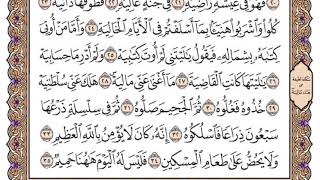 فَهُوَ فِي عِيشَةٍ رَّاضِيَةٍ ٢١ فِي جَنَّةٍ عَالِيَةٍ ٢٢ قُطُوفُهَا دَانِيَةٌ ٢٣
كُلُوا۟ وَٱشْرَبُوا۟ هَنِيٓـًٔۢا بِمَآ أَسْلَفْتُمْ فِي ٱلْأَيَّامِ ٱلْخَالِيَةِ ٢٤ وَأَمَّا مَنْ أُوتِيَ
كِتَٰبَهُۥ بِشِمَالِهِۦ فَيَقُولُ يَٰلَيْتَنِي لَمْ أُوتَ كِتَٰبِيَهْ ٢٥ وَلَمْ أَدْرِ مَا حِسَابِيَهْ
٢٦ يَٰلَيْتَهَا كَانَتِ ٱلْقَاضِيَةَ ٢٧ مَآ أَغْنَىٰ عَنِّي مَالِيَهْ ٢٨ هَلَكَ عَنِّي سُلْطَٰنِيَهْ
٢٩ خُذُوهُ فَغُلُّوهُ ٣٠ ثُمَّ ٱلْجَحِيمَ صَلُّوهُ ٣١ ثُمَّ فِي سِلْسِلَةٍ ذَرْعُهَا
سَبْعُونَ ذِرَاعًا فَٱسْلُكُوهُ ٣٢ إِنَّهُۥ كَانَ لَا يُؤْمِنُ بِٱللَّهِ ٱلْعَظِيمِ
٣٣ وَلَا يَحُضُّ عَلَىٰ طَعَامِ ٱلْمِسْكِينِ ٣٤ فَلَيْسَ لَهُ ٱلْيَوْمَ هَٰهُنَا حَمِيمٌ ٣٥